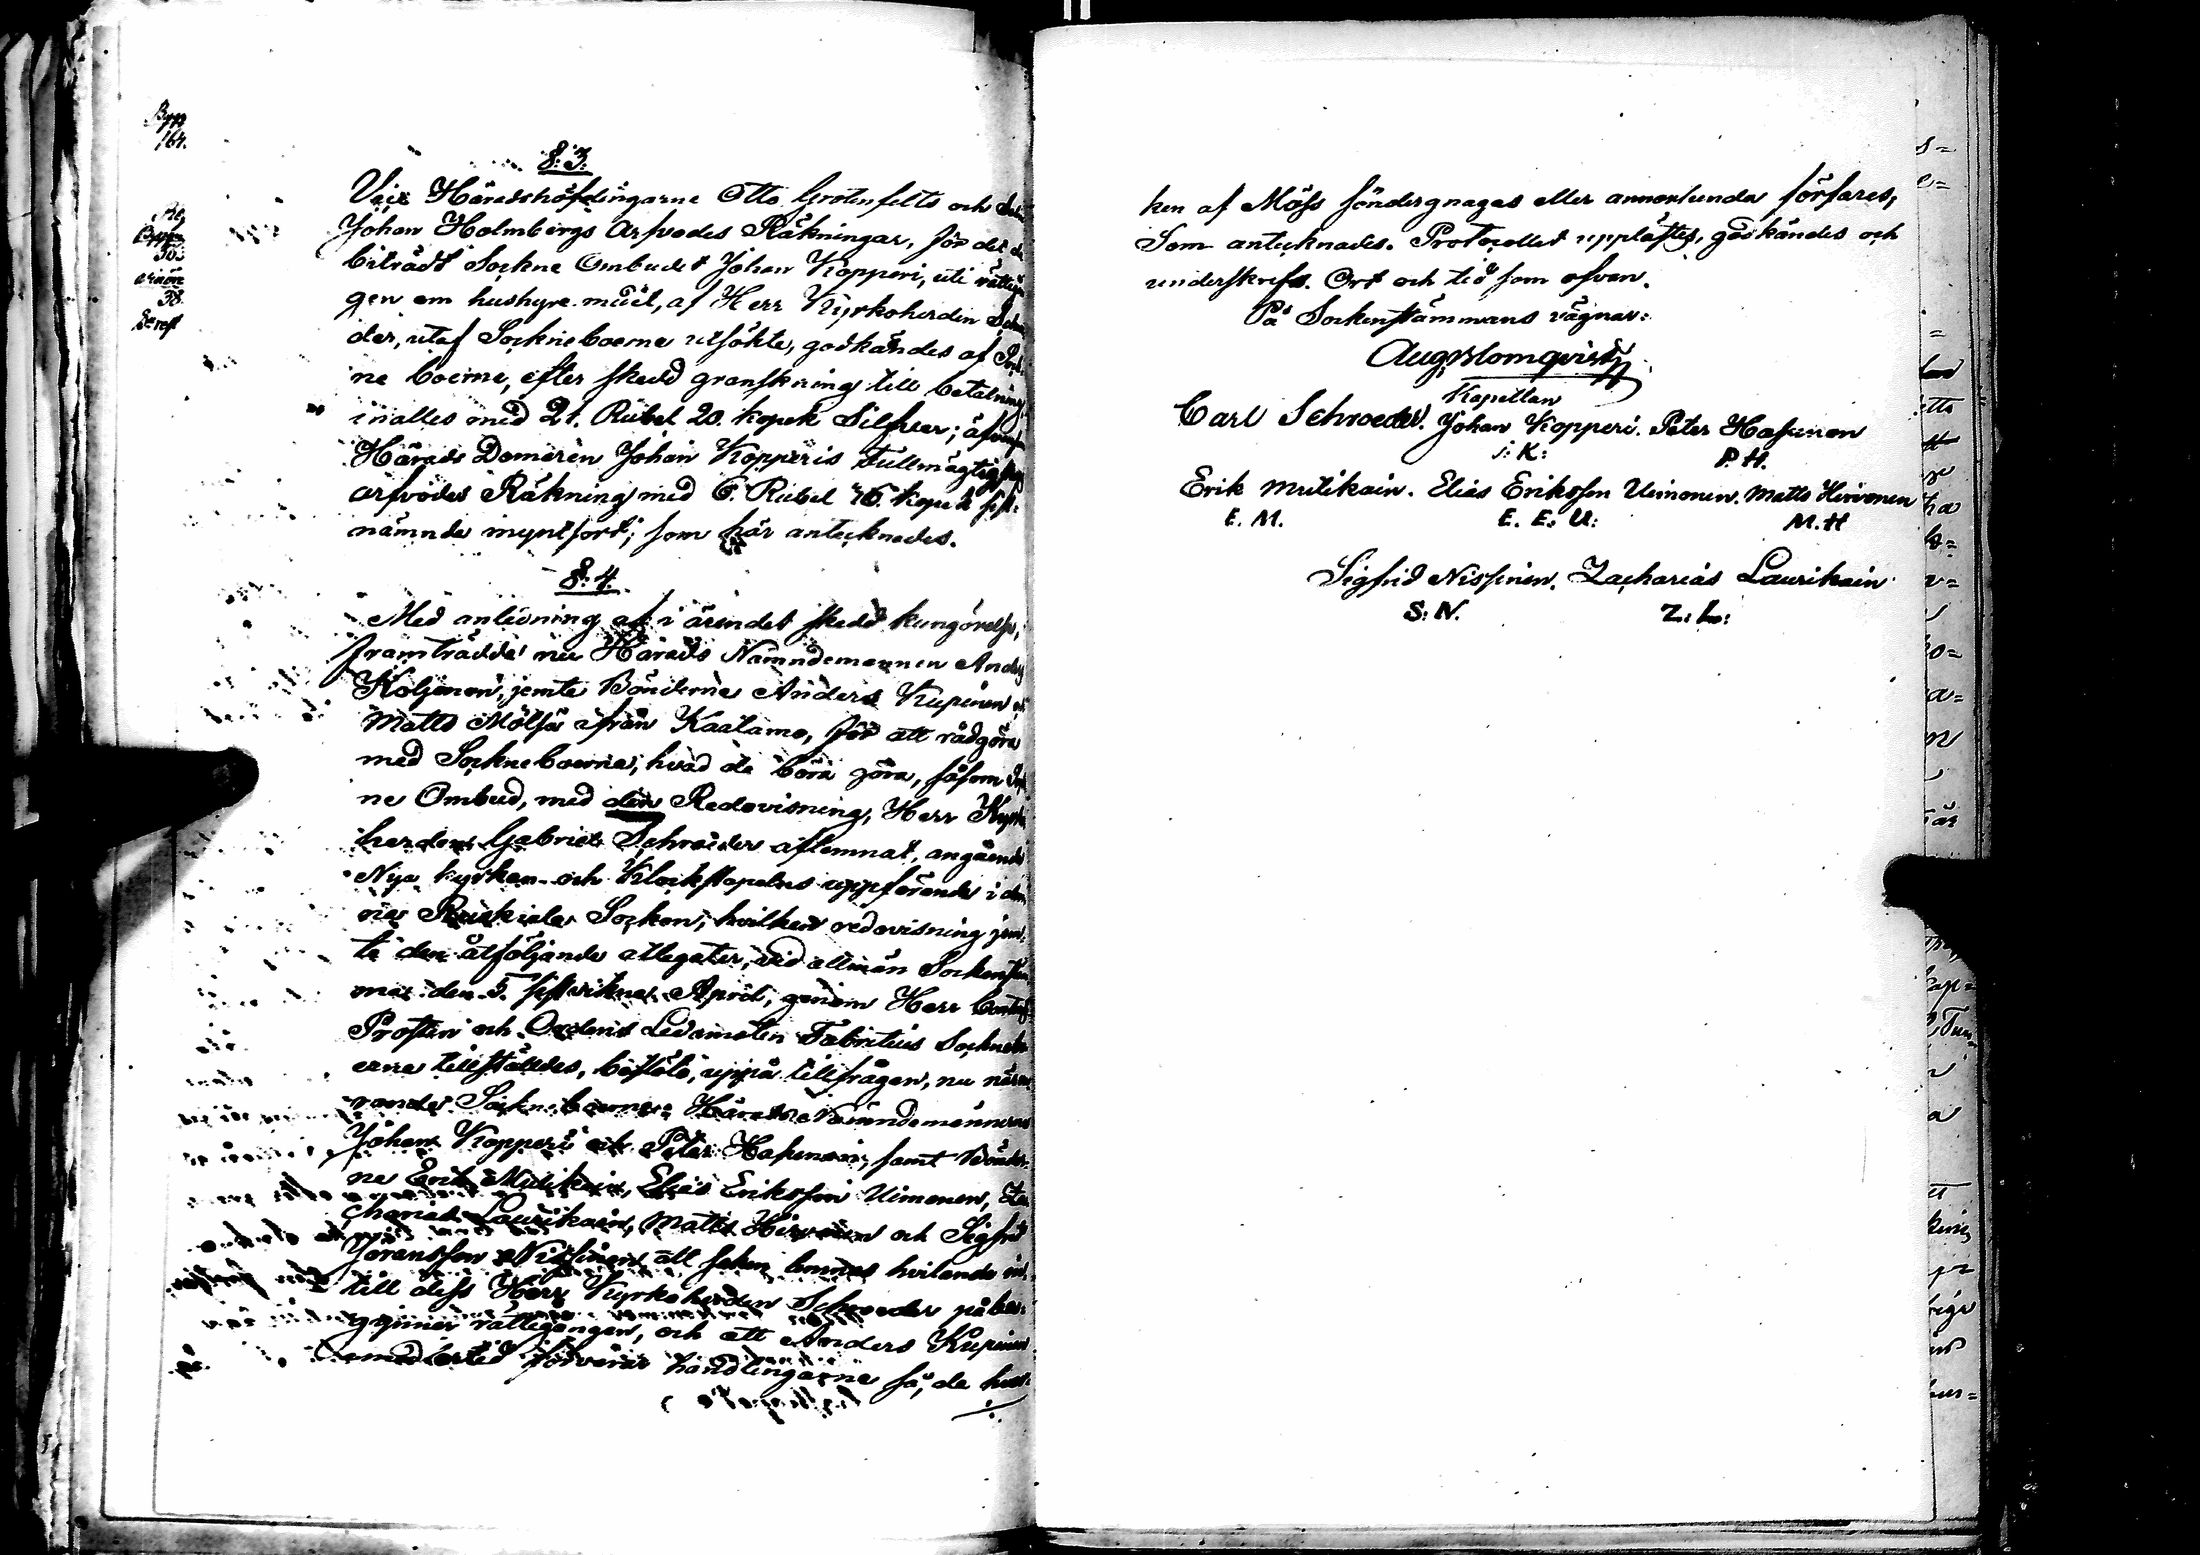 §: 3.
Vice Häradshöfdingarne Otto Grotenfelts och
Johan Holmbergs Arfvodes Räkningar, för det de
biträdt Sockne Ombudet Johan Kopperi, uti rättegån
gen om hushyre medel, af Herr Kyrkoherden Schroe
der, utaf Sockneboerne utsökte, godkändes af Sock
ne boerne, efter skedd granskning till betalning,
inalles med 21. Rubel 20. kopek Silfver; äfvensom
Härads Domaren Johan Kopperis Fullmägtigskaps
arfvodes Räkning med 6. Rubel 76. kopek sist-
nämnda myntsort; som här antecknades.
§: 4.
Med anledning af i ärendet skedd kungörelse,
framträdde nu Härads Nämndemannen Anders
Koljonen, jemte Bönderne Anders Kupinen och
Matts Mölsä ifrån Kaalamo, för att rådgöra
med Sockneboerne, hvad de böra göra, såsom Sock
ne Ombud, med den Redovisning, Herr Kyrko
herden Gabriel Schroeder aflemnat, angående
Nya kyrkan och Klockstapelns uppförande i den
na Ruskiala Socken, hvilken redovisning jem-
te den åtföljande allegater, vid allmän Sockenstäm
ma den 5. sistvikne April, genom Herr Contracts
Prosten och Ordens Ledamoten Fabritius Sockneboe
erne tillställdes, beslöto, uppå tillfrågan, nu närva
rande Sockneboerne: Härads Nämndemännerne
Johan Kopperi och Peter Hasunen, samt Bönder-
ne Erik Mulikain, Elias Eriksson Uimonen, Za
charias Laurikain, Matts Hirvonen och Sigfrid
Joransson Nissinen, att saken lemnas hvilande in
till dess Herr Kyrkoherden Schroeder påbe-
gynner rättegången, och att Anders Kupinen
emedlertid förvarar handlingarne så, de hvar-
ken af Möss söndergnagas eller annorlunda förfares,
Som antecknades. Protocollet upplästes, godkändes och
underskrefs. Ort och tid som ofvan.
På Sockenstämmans vägnar:
Aug Blomqvist
Kapellan
Carl Schroeder. Johan Kopperi. Peter Hasunen
J: K: P. H.
Erik Mulikain. Elias Eriksson Uimonen. Matts Hirvonen
E. M. E. E. U: M. H
Sigfrid Nissinen. Zacharias Laurikain
S: N. Z: L: